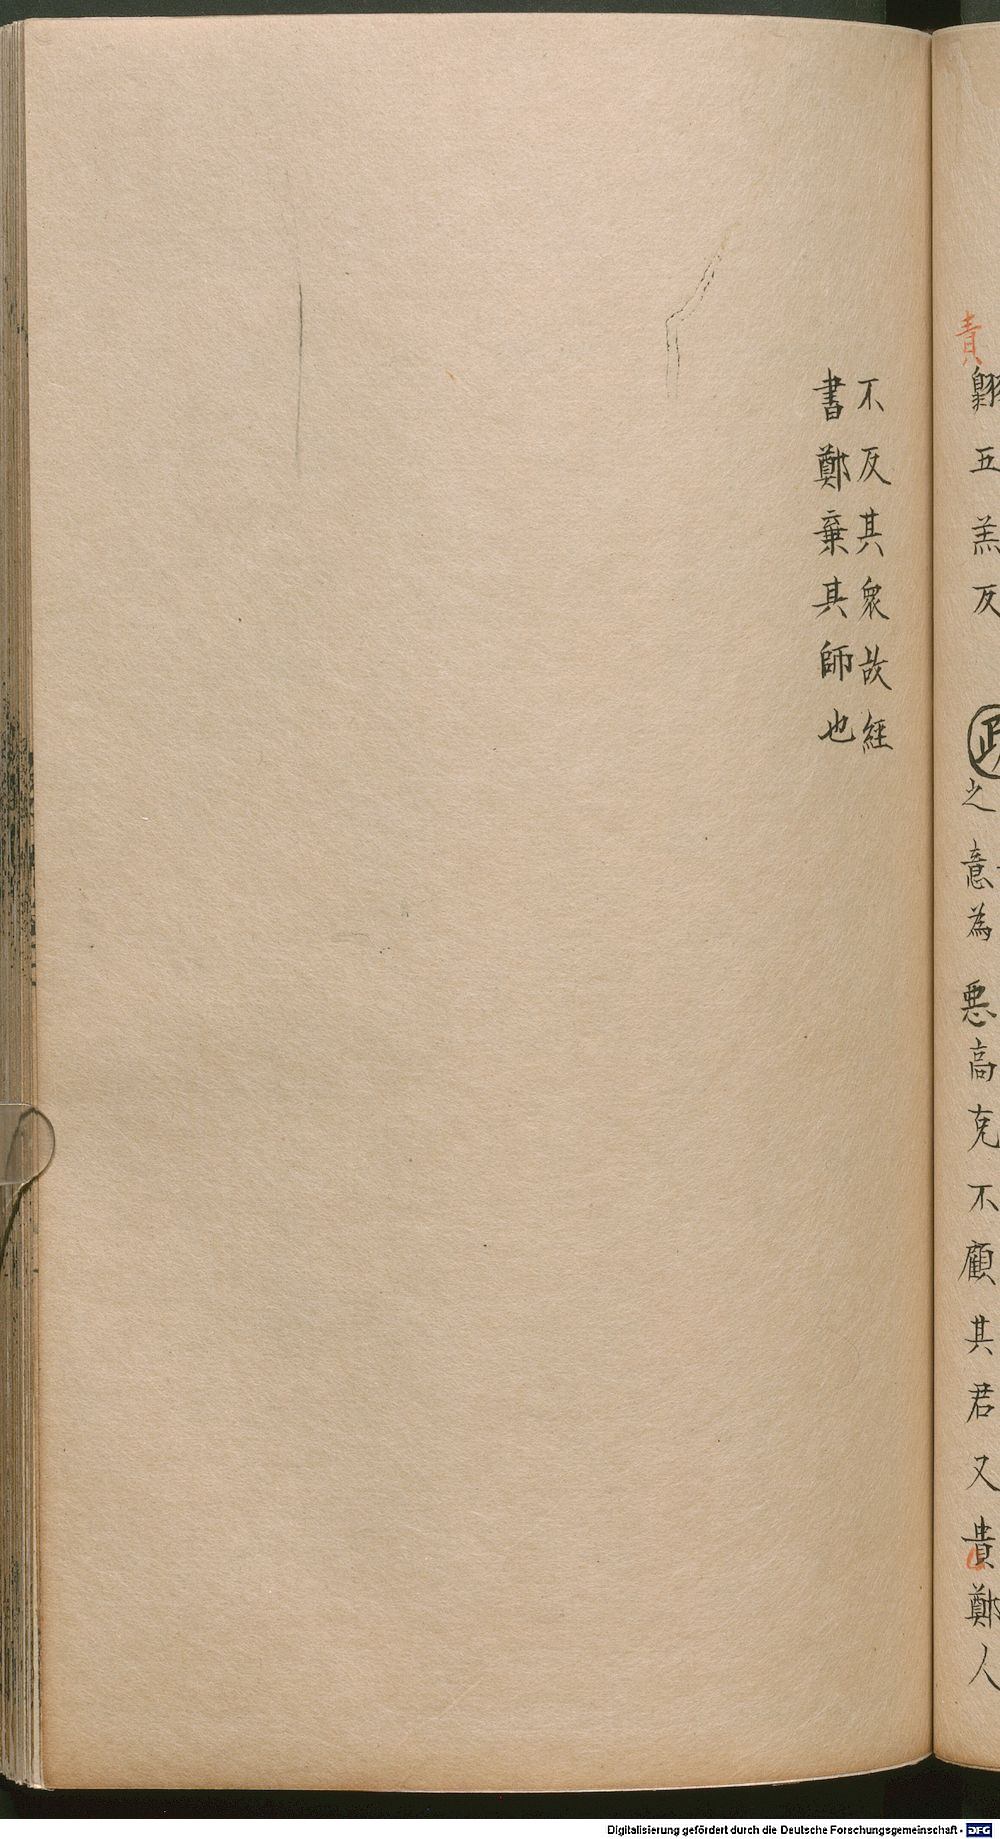 責
翺五羔反
疏
之意為惡高克不顧其君又貴鄭人
不反其衆故經
書鄭棄其師也
Digitalisierung gefördert durch die Deutsche Forschungsgemeinschaft - DFG